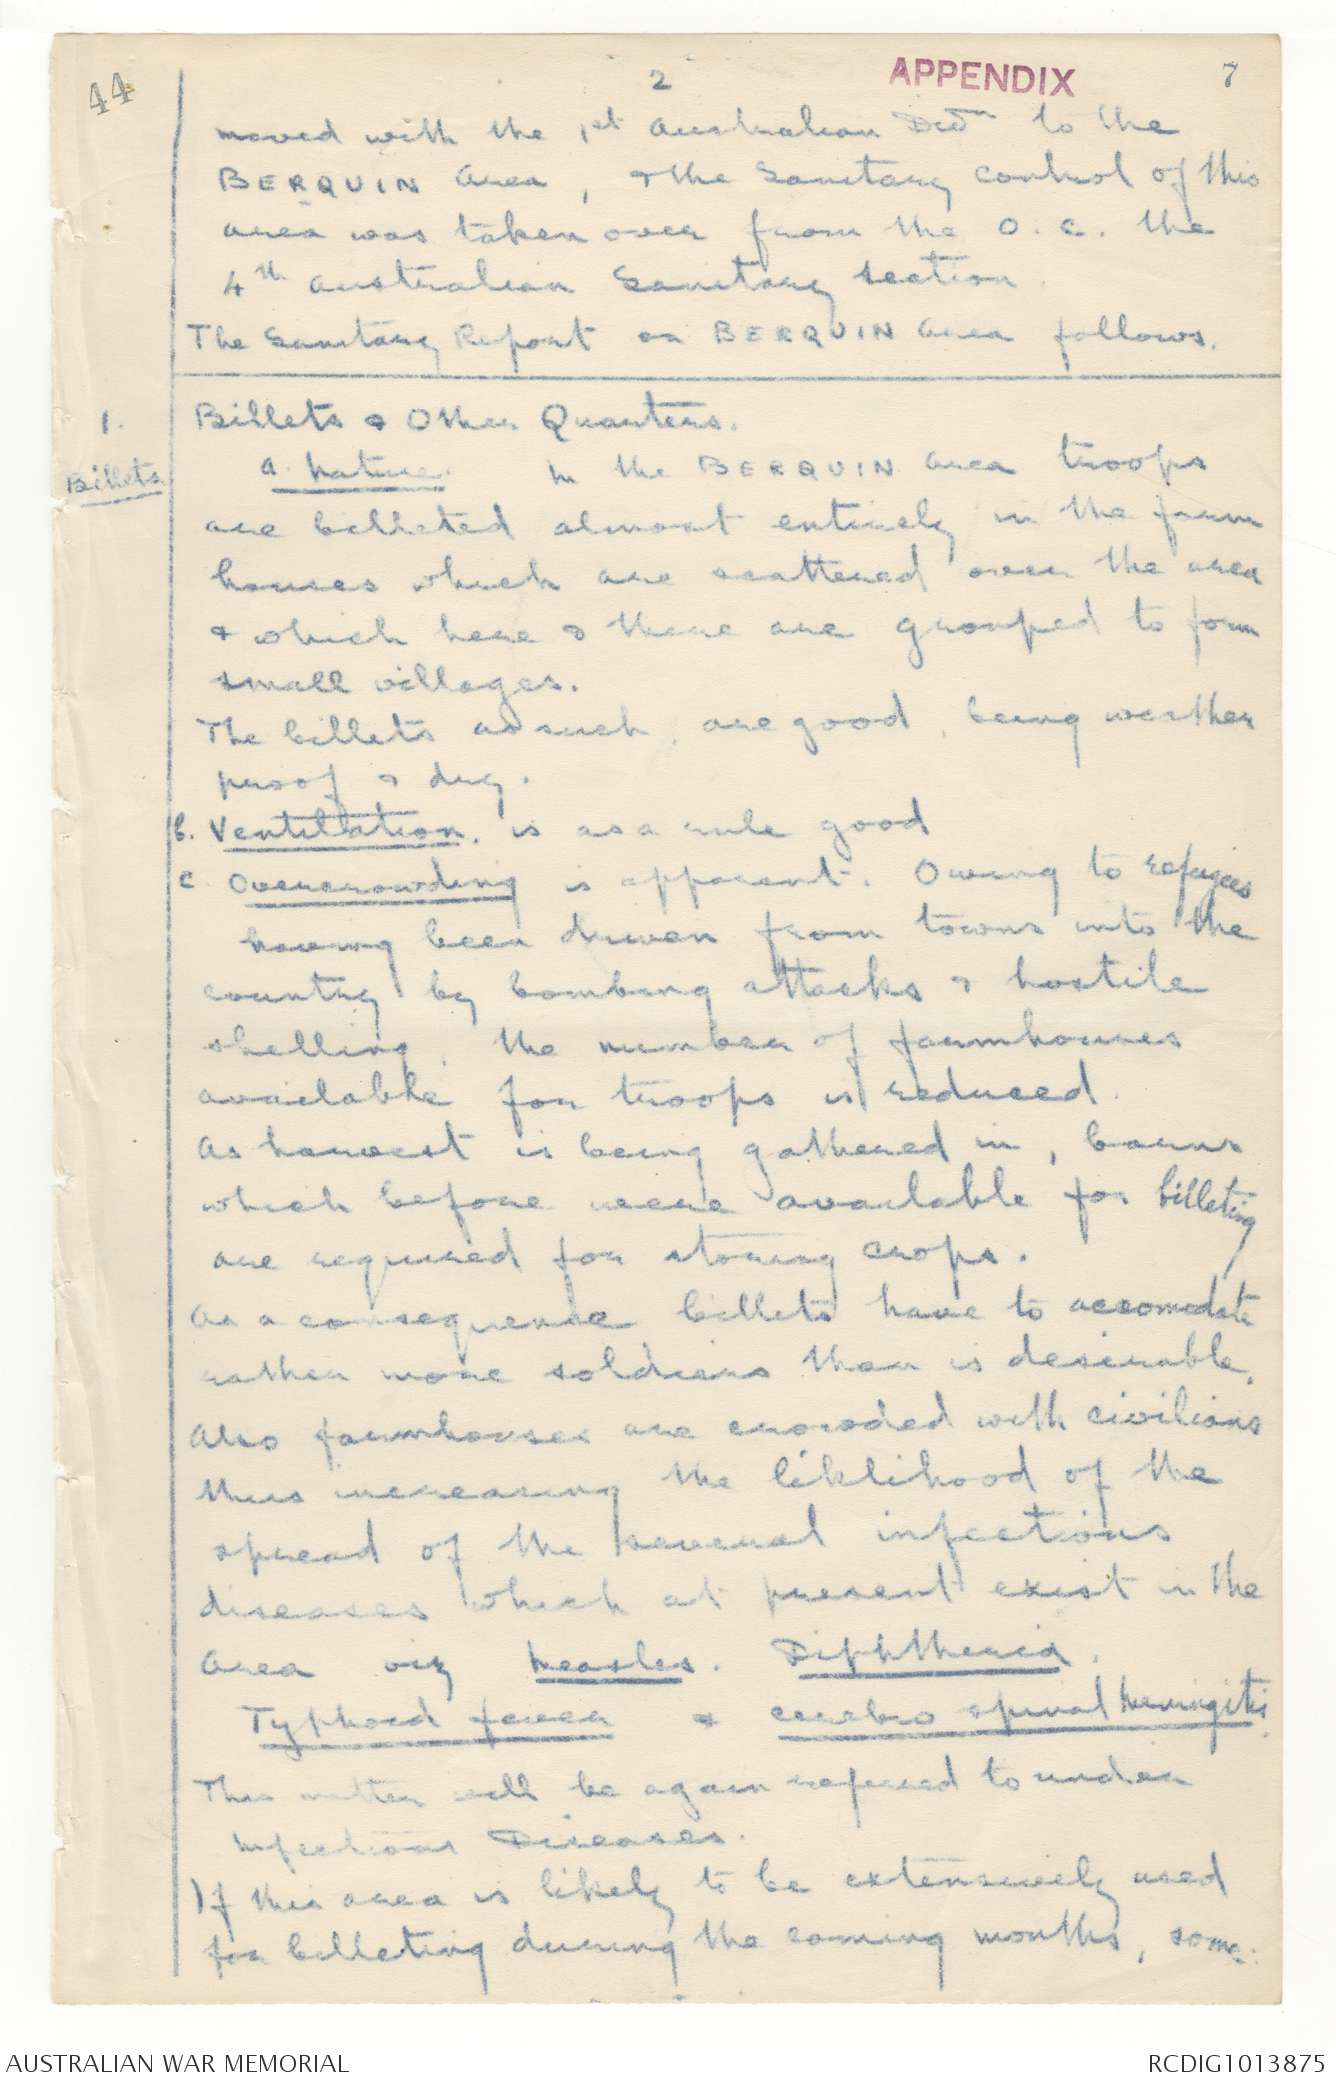 44
2
APPENDIX
7
moved with the 1st Australian Divn to the
BERQUIN Area, & the Sanitary control of this
area was taken over from the O.C. the
4th Australian Sanitary Section.
The Sanitary Report on BERQUIN Area follows.
1.
Billets
Billets & Other Quarters.
a. Nature. In the BERQUIN Area troops
are billeted almost entirely in the farm
houses which are scattered over the area
& which here & there are grouped to form
small villages.
The billets as such, are good, being weather
proof & dry.
b. Ventilation, is as a rule good
c. Overcrowding is apparent. Owing to refugees
having been driven from towns into the
country by bombing attacks & hostile
shelling, the number of farmhouses
available for troops is reduced.
As harvest is being gathered in, barns
which before were available for billeting
are required for storing crops.
As a consequence billets have to accomodate
rather more soldiers than is desirable.
Also farmhouses are crowded with civilians
thus increasing the liklihood of the
spread of the several infectious
diseases which at present exist in the
Area viz Measles. Diphtheria.
Typhoid fever & cerebro spinal Meningitis.
This matter will be again referred to under
Infectious Diseases.
If this area is likely to be extensively used
for billeting during the coming months, some
AUSTRALIAN WAR MEMORIAL
RCDIG1013875